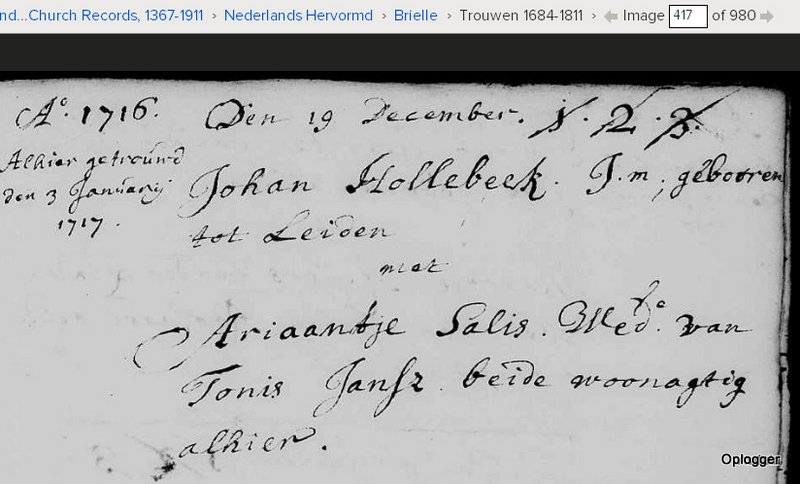 nd...Church Records, 1367-1911 › Nederlands Hervormd › Brielle › Trouwen 1684-1811 › Image 417 of 980
A°. 1716. Den 19 December. 1. 2. 3.
Alhier getrouwd
den 3 Januarij
1717.
Johan Hollebeek. J.m; gebooren
tot Leiden
met
Ariaantje Salis. Wed°. van
Tonis Jansz beide woonagtig
alhier.
Oplogger